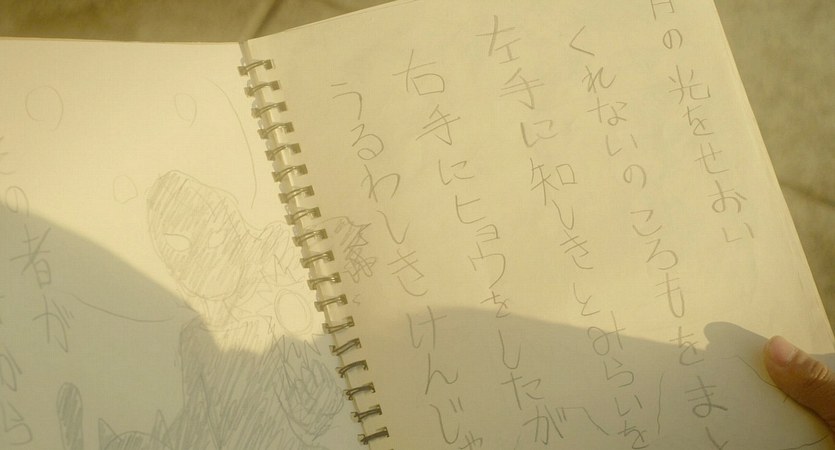 月の光をせおい
くれないのころもをまし
左手に知しきとみらいを
右手にヒョウをしたが
うるわしきけんじゃ
その者が
から